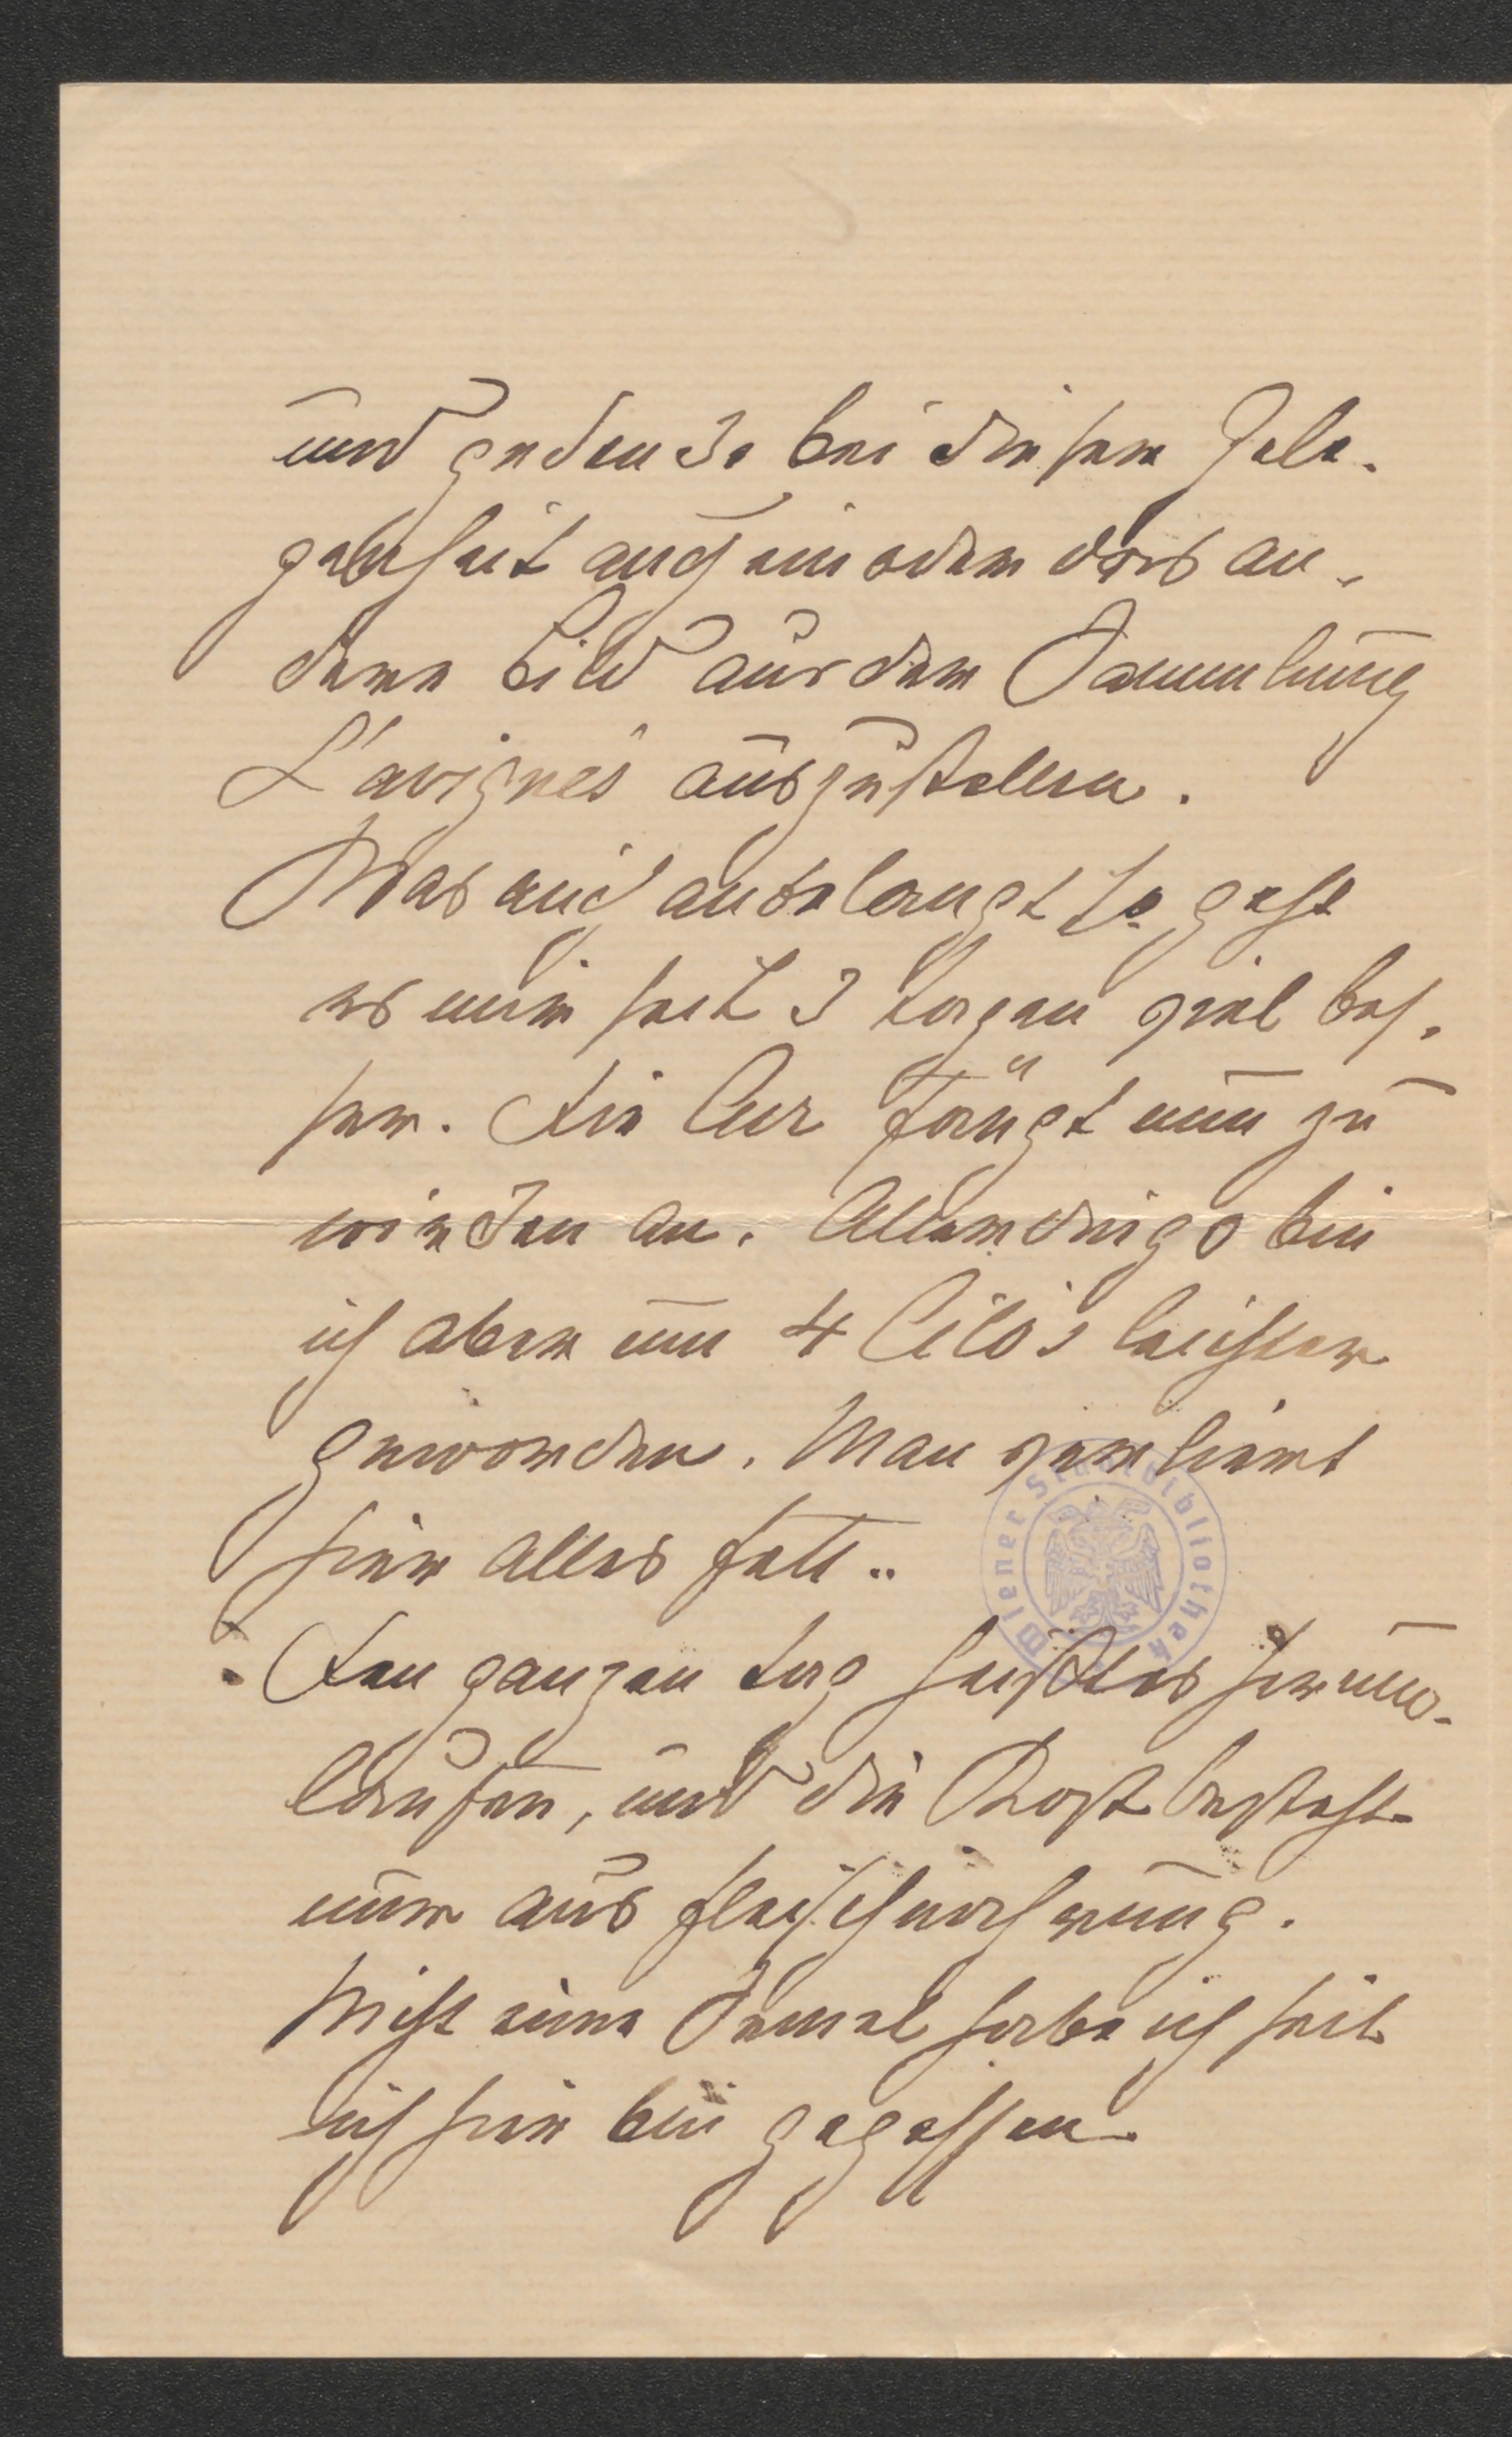 und gedenke bei dieser Gele-
genheit auch ein oder das an-
dere Bild aus der Sammlung
Lavigne's auszustellen.
Was mich anbelangt so geht
es mir seit 3 Tagen viel bes-
ser. Die Cur fängt nun zu
wirken an. Allerdings bin
ich aber um 4 Cilo's leichter
geworden. Man verliert
hier alles Fett..
Den ganzen Tag heißt es herum-
laufen, und die Kost besteht
nur aus Fleischnahrung.
Nicht eine Semel habe ich seit
ich hier bin gegessen.
Wiener Stadtbibliothek